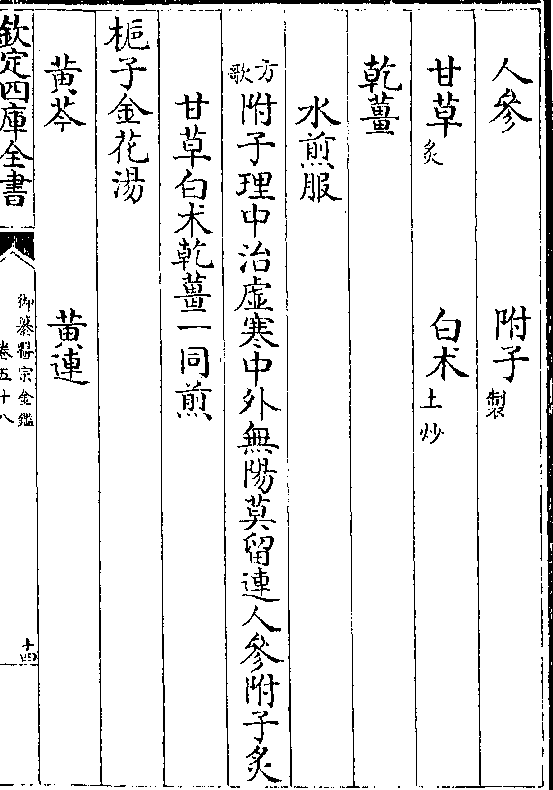 人參 附子製
甘草炙 白术土炒
乾薑
水煎服
方歌 附子理中治虛寒中外無陽莫留連人參附子炙
甘草白术乾薑一同煎
梔子金花湯
黃芩 黃連
欽定四庫全書 御纂醫宗金鑑 卷五十八 十四